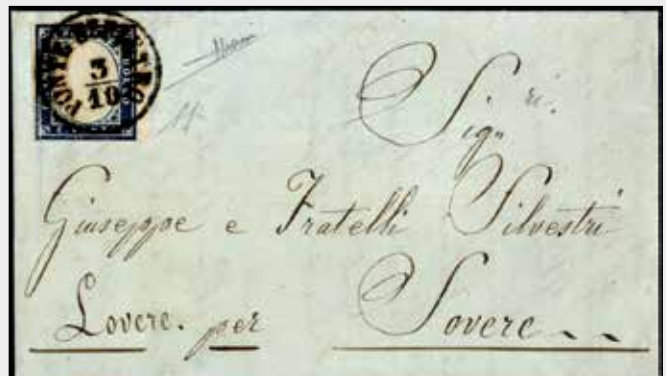 3
10
Sig.ri
Giuseppe e Fratelli Silvestri
Lovere. per Sovere